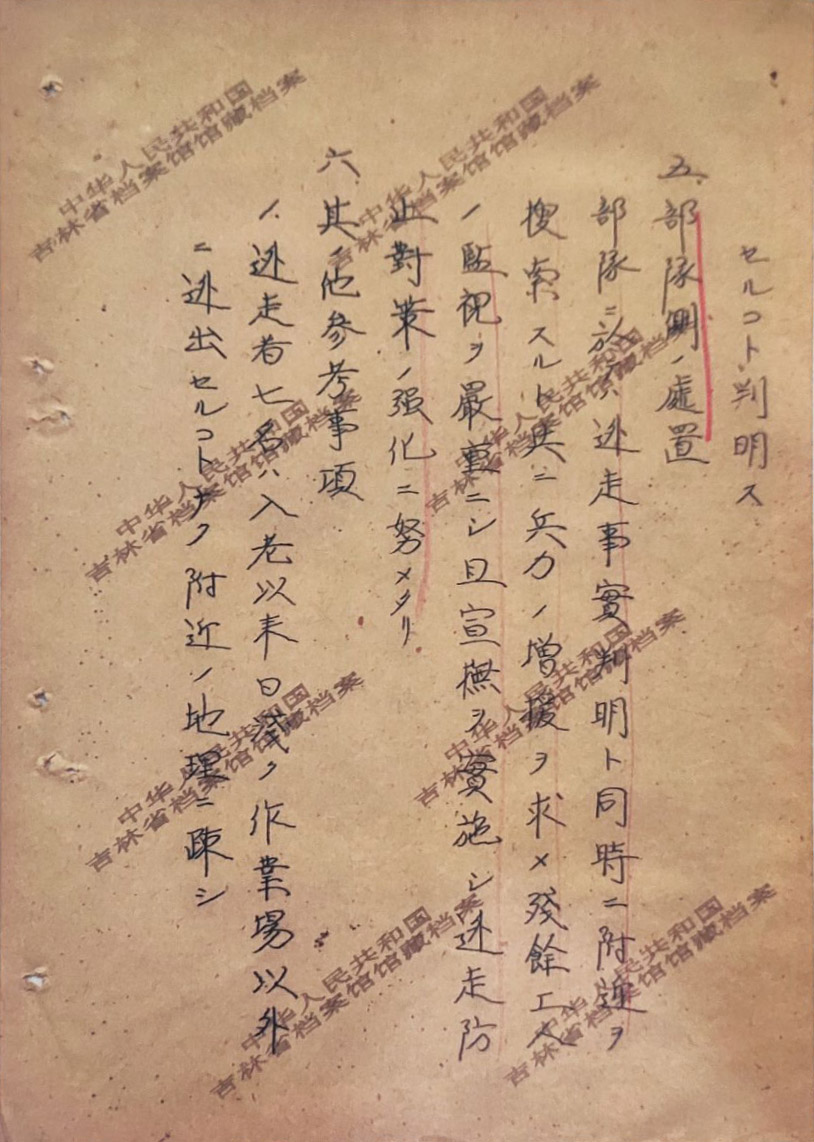 セルコト判明ス
五、部隊側ノ處置
部隊ニ於テハ逃走事實判明ト同時ニ附近ヲ
搜索スルト共ニ兵力ノ增援ヲ求メ殘餘工人
ノ監視ヲ嚴重ニシ且宣撫ヲ實施シ逃走防
止對策ノ强化ニ努メタリ
六、其ノ他參考事項
1、逃走者七名ハ入老以来日淺ク作業場以外
ニ逃出セルコトナク附近ノ地理ニ疎シ
中华人民共和国
吉林省档案馆馆藏档案
中华人民共和国
吉林省档案馆馆藏档案
中华人民共和国
吉林省档案馆馆藏档案
中华人民共和国
吉林省档案馆馆藏档案
中华人民共和国
吉林省档案馆馆藏档案
中华人民共和国
吉林省档案馆馆藏档案
中华人民共和国
吉林省档案馆馆藏档案
中华人民共和国
吉林省档案馆馆藏档案